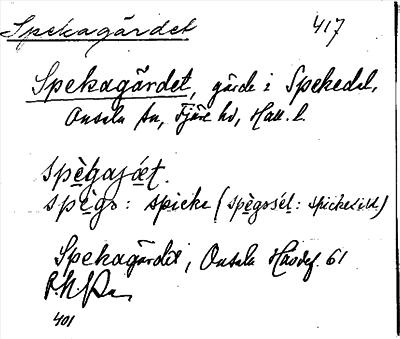 Spekagärdet 417
Spekagärdet, gärde i Spekedal,
Onsala sn, Fjäre hd, Hall. l.
spègajǽt.
spègs: spicke (spègssél: spickesill)
Spekagärdet, Onsala Husdef. 61
401